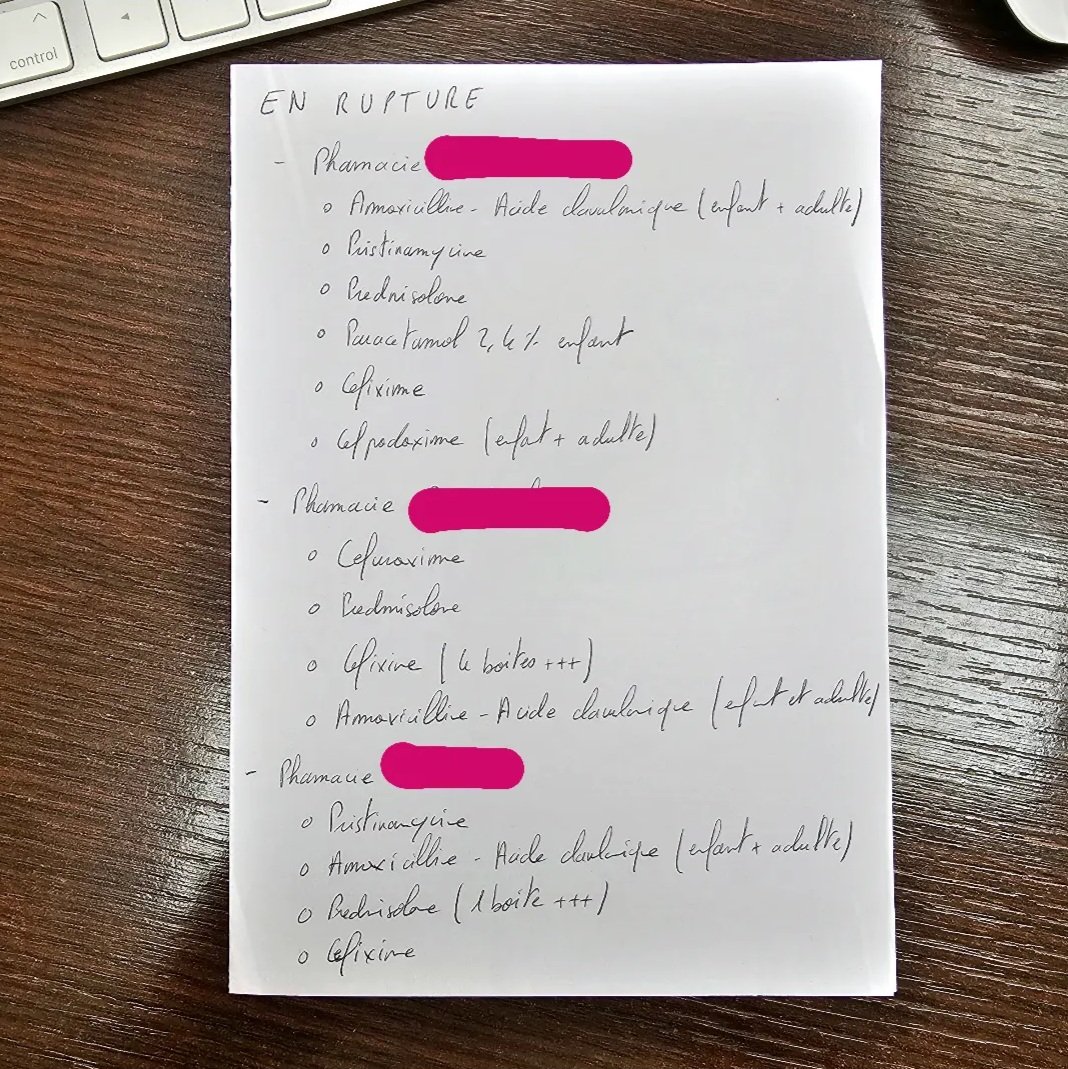 control
EN RUPTURE
- Phamacie
o Amoxicilline - Acide clavulanique (enfant + adulte)
o Pristinamycine
o Prednisolone
o Paracetamol 2,4% enfant
o Cefixime
o Cefpodoxime (enfant + adulte)
- Phamacie
o Cefuroxime
o Prednisolone
o Cefixime (4 boites +++)
o Amoxicilline - Acide clavulanique (enfant et adulte)
- Phamacie
o Pristinamycine
o Amoxicilline - Acide clavulanique (enfant + adulte)
o Prednisolone (1 boite +++)
o Cefixime